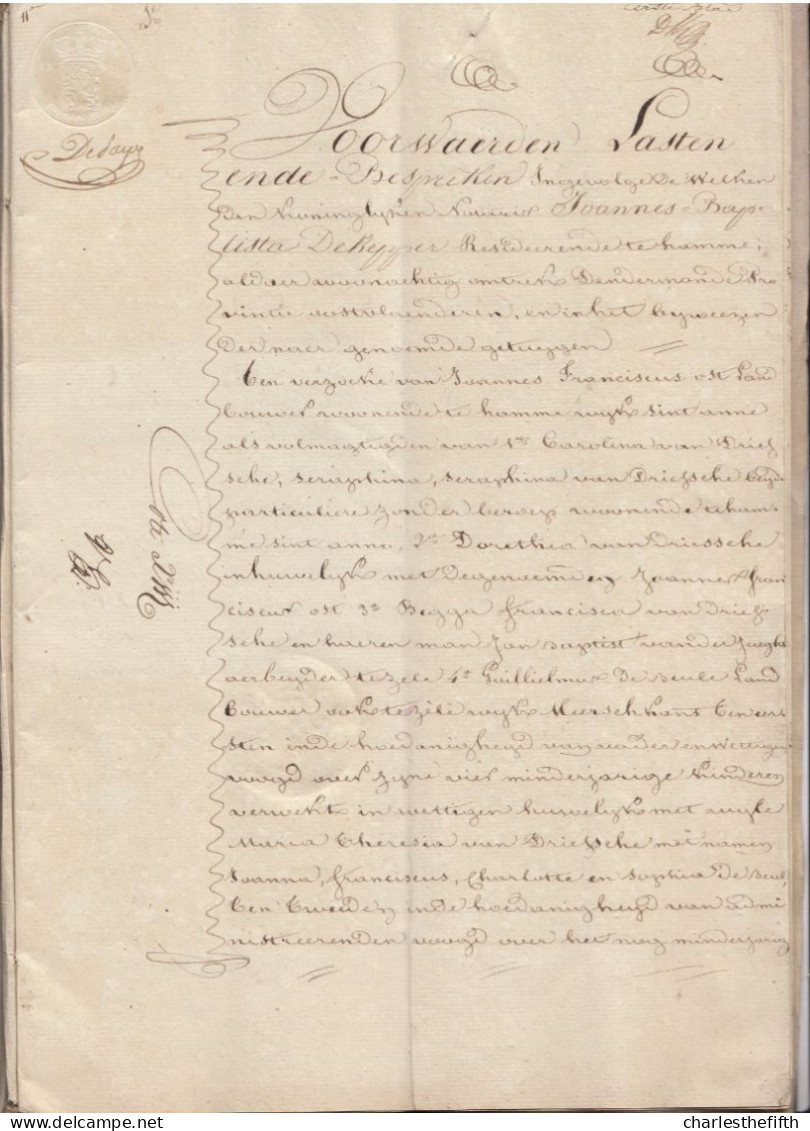 eerste blad
Voorwaerden Lasten
ende = Bespreken Ingevolge De Welken
Den Koninglyken Notaris Joannes = Bap=
tista DeKepper Resideerende te hamme,
aldaer woonachtig omtrek Dendermonde Pro
vintie oostvlaenderen, en in het byweezen
Der naer genoemde getuygen
Ten verzoeke van Joannes Franciscus ost Land
bouwer woonende te hamme wyk sint anne
als volmagtigden van 1ns Carolina van Dries
sche, seraphina, seraphina van Driessche beyde
particuliere zonder beroep woonende te ham
me sint anne, 2ns Dorothea van Driessche
in huwelyk met Degenoemden Joannes fran
ciscus ost 3e Begga francisca van Dries
sche en haeren man Jan Baptist vander
aerbeyder te zele 4e Guillielmus De Beule Land
bouwer ook te zele wyk Meerschkant Ten eer
sten in de hoedanigheyd van vader en wettigen
voogd over zyne vier minderjarige kinderen
verwekt in wettigen huwelyk met wyle
Maria Theresia van Driessche met namen
Joanna, franciscus, Charlotte en sophia de Beul
Ten Tweeden in de hoedanigheyd van admi
nistreerenden voogd over het nog minderjarig
charlesthefifth